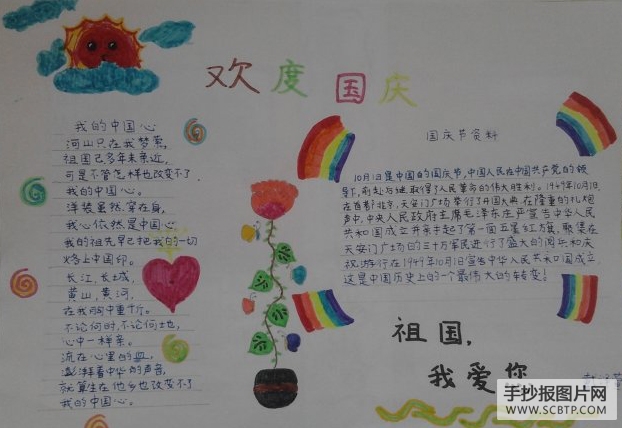 欢度国庆
我的中国心
河山只在我梦萦,
祖国已多年未亲近,
可是不管怎样也改变不了
我的中国心。
洋装虽然穿在身,
我心依然是中国心
我的祖先早已把我的一切
烙上中国印。
长江,长城,
黄山,黄河.
在我胸中重千斤。
不论何时,不论何地,
心中一样亲。
流在心里的血,
澎湃着中华的声音,
就算生在他乡也改变不了
我的中国心。
国庆节资料
10月1日是中国的国庆节,中国人民在中国共产党的领
导下,前赴后继取得了人民革命的伟大胜利。1949年10月1日,
在首都北京,天安门广场举行了开国大典,在隆重的礼炮
声中,中央人民政府主席毛泽东庄严宣告中华人民
共和国成立并亲手起了第一面五星红万旗,聚集在
天安门广场的三十万军民进行了盛大的阅兵和庆
祝游行在1949年10月1日宣告中华人民共和国成立
这是中国历史上的一个最伟大的转变!
祖国,
我爱您
手抄报图片网
WWW.SCBTP.COM